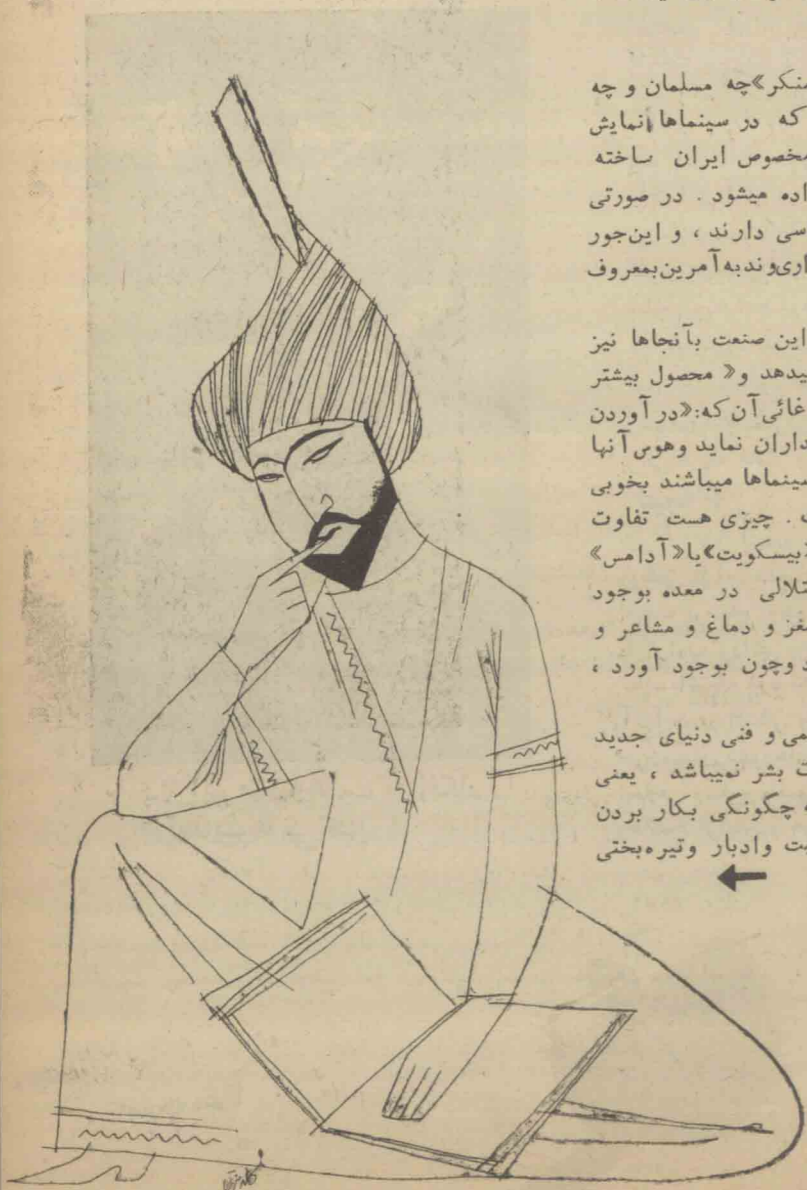 منکر»چه مسلمان و چه
که در سینماها نمایش
مخصوص ایران ساخته
اده میشود . در صورتی
سی دارند ، و این‌جور
اری‌وندبه‌آمرین‌بمعروف
این صنعت بآنجاها نیز
یدهد و« محصول بیشتر
غائی‌آن که:«در آوردن
داران نماید وهوس‌آنها
سینماها میباشند بخوبی
. چیزی هست تفاوت
«بیسکویت»یا«آدامس»
تلالی در معده بوجود
مغز و دماغ و مشاعر و
وچون بوجود آورد ،
می و فنی دنیای جدید
ت بشر نمیباشد ، یعنی
چگونگی بکار بردن
ت وادبار وتیره‌بختی